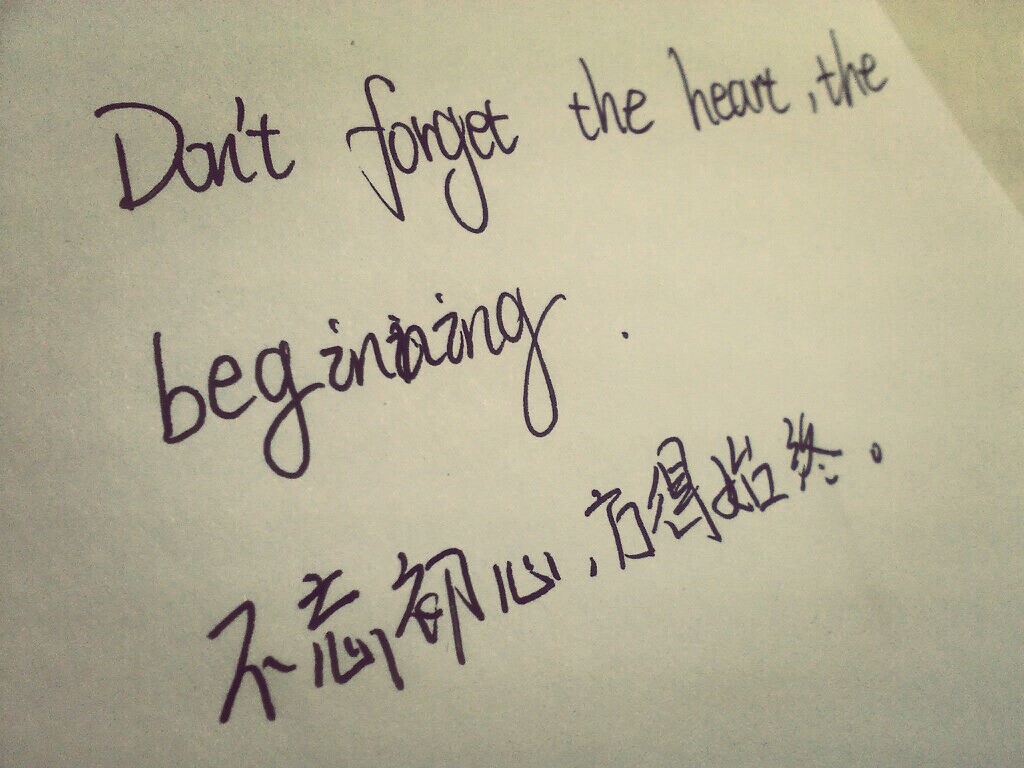 Don't forget the heart, the
begining.
不忘初心,方得始终.